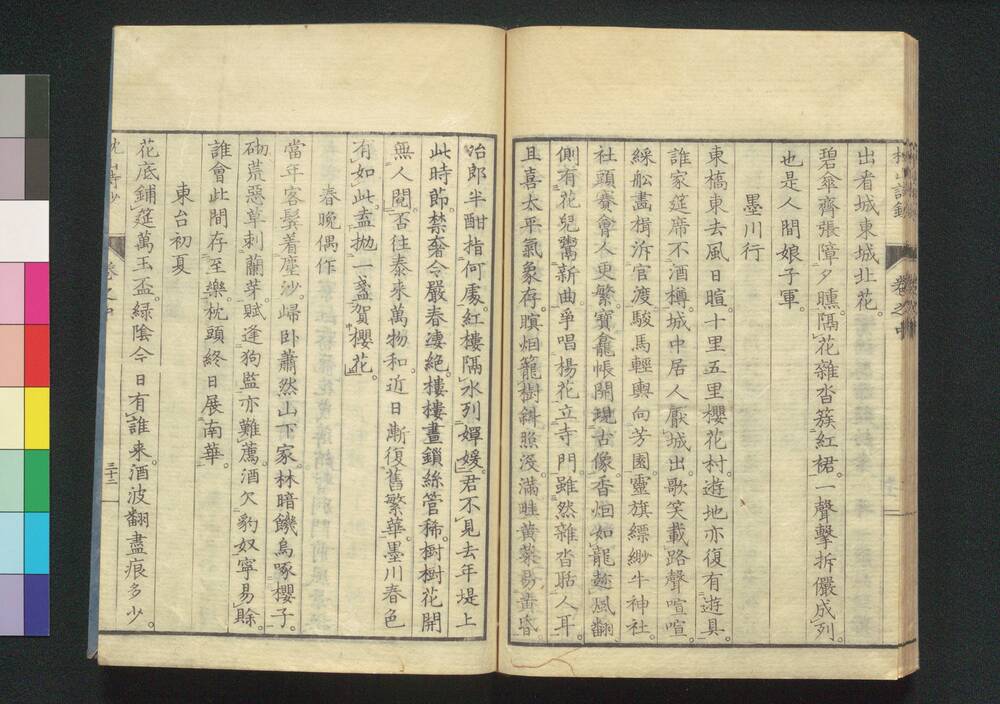 出看城東城北花。
碧傘齊張障夕曛。隔花雜沓簇紅裙。一聲擊柝儼成列。
也是人間娘子軍。
墨川行
東橋東去風日暄。十里五里櫻花村。遊地亦復有遊具。
誰家筵席不酒樽。城中居人厭城出。歌笑載路聲喧喧。
綵舩畫楫泝官渡。駿馬輕輿向芳園。靈旗縹緲牛神社。
社頭賽會人更繁。寶龕帳開現古像。香烟如龍趁風翻。
側有花兒鬻新曲。爭唱楊花立寺門。雖然雜沓聒人耳。
且喜太平氣象存。暝烟籠樹斜照沒。滿畦黄菜易黄昏。
冶郎半酣指何處。紅樓隔水列嬋媛。君不見去年堤上
此時節。禁奢令嚴春凄絶。樓樓晝鎖絲管稀。樹樹花開
無人閱。否往泰來萬物和。近日漸復舊繁華。墨川春色
有如此。盍抛一盞賀櫻花。
春晩偶作
當年客鬂着塵沙。歸卧蕭然山下家。林暗饑烏啄櫻子。
砌荒惡草刺蘭芽。賦逢狗監亦難薦。酒欠豹奴寧易賖。
誰會此間存至樂。枕頭終日展南華。
東台初夏
花底鋪筵萬玉盃。緑陰今日有誰来。酒波翻盡痕多少。
卷之中
三十二